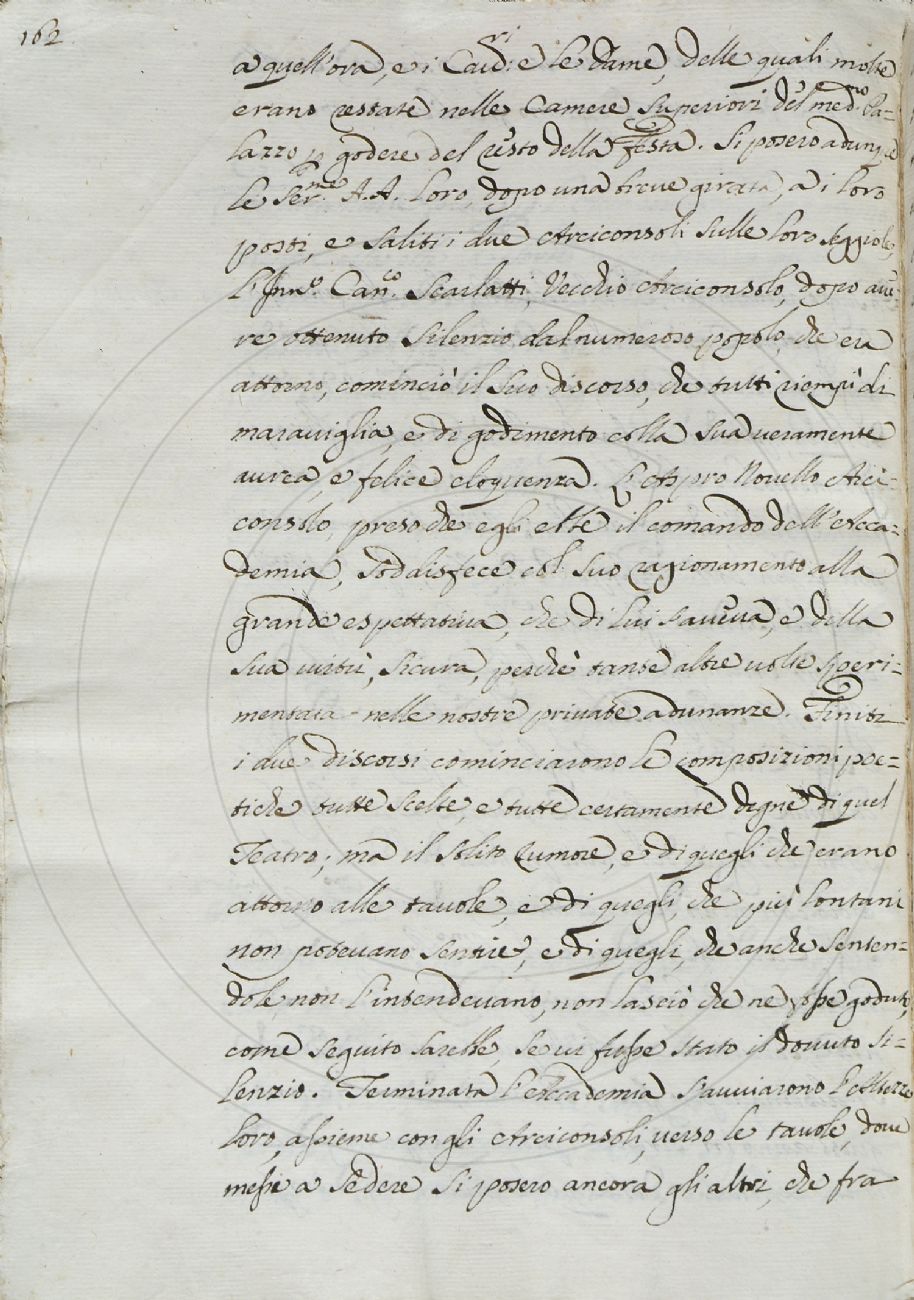 162
a quell'ora, e i Cav.ri e le Dame, delle quali molte
erano restate nelle Camere Superiori del med.mo Pa=
lazzo p godere del resto della festa. Si posero adunque
le Ser.me A.A. Loro, dopo una breve girata, a i loro
posti, e saliti i due Arciconsoli sulle loro seggiole,
l'Inn.o Can.co Scarlatti, Vecchio Arciconsolo, dopo ave=
re ottenuto silenzio dal numeroso popolo, che era
attorno, cominciò il suo discorso, che tutti riempì di
maraviglia, e di godimento colla sua veramente
aurea, e felice eloquenza. L'Aspro Novello Arci=
consolo, preso che egli ebbe il comando dell'Acca=
demia, soddisfece col suo ragionamento alla
grande espettativa, che di lui s'aveva, e della
sua virtù, sicura, perchè tante altre volte speri=
mentata nelle nostre private adunanze. Finiti
i due discorsi cominciarono le composizioni poe=
tiche tutte scelte, e tutte certamente degne di quel
Teatro; ma il solito rumore, e di quegli che erano
attorno alle tavole, e di quegli, che più lontani
non potevano sentire, e di quegli, che anche senten=
dole, non l'intendevano, non lasciò che ne fosse goduto,
come seguito sarebbe, se vi fusse stato il dovuto si=
lenzio. Terminata l'Accademia s'avviarono l'Altezze
Loro, assieme con gli Arciconsoli, verso le tavole, dove
messe a sedere si posero ancora gli altri, che fra